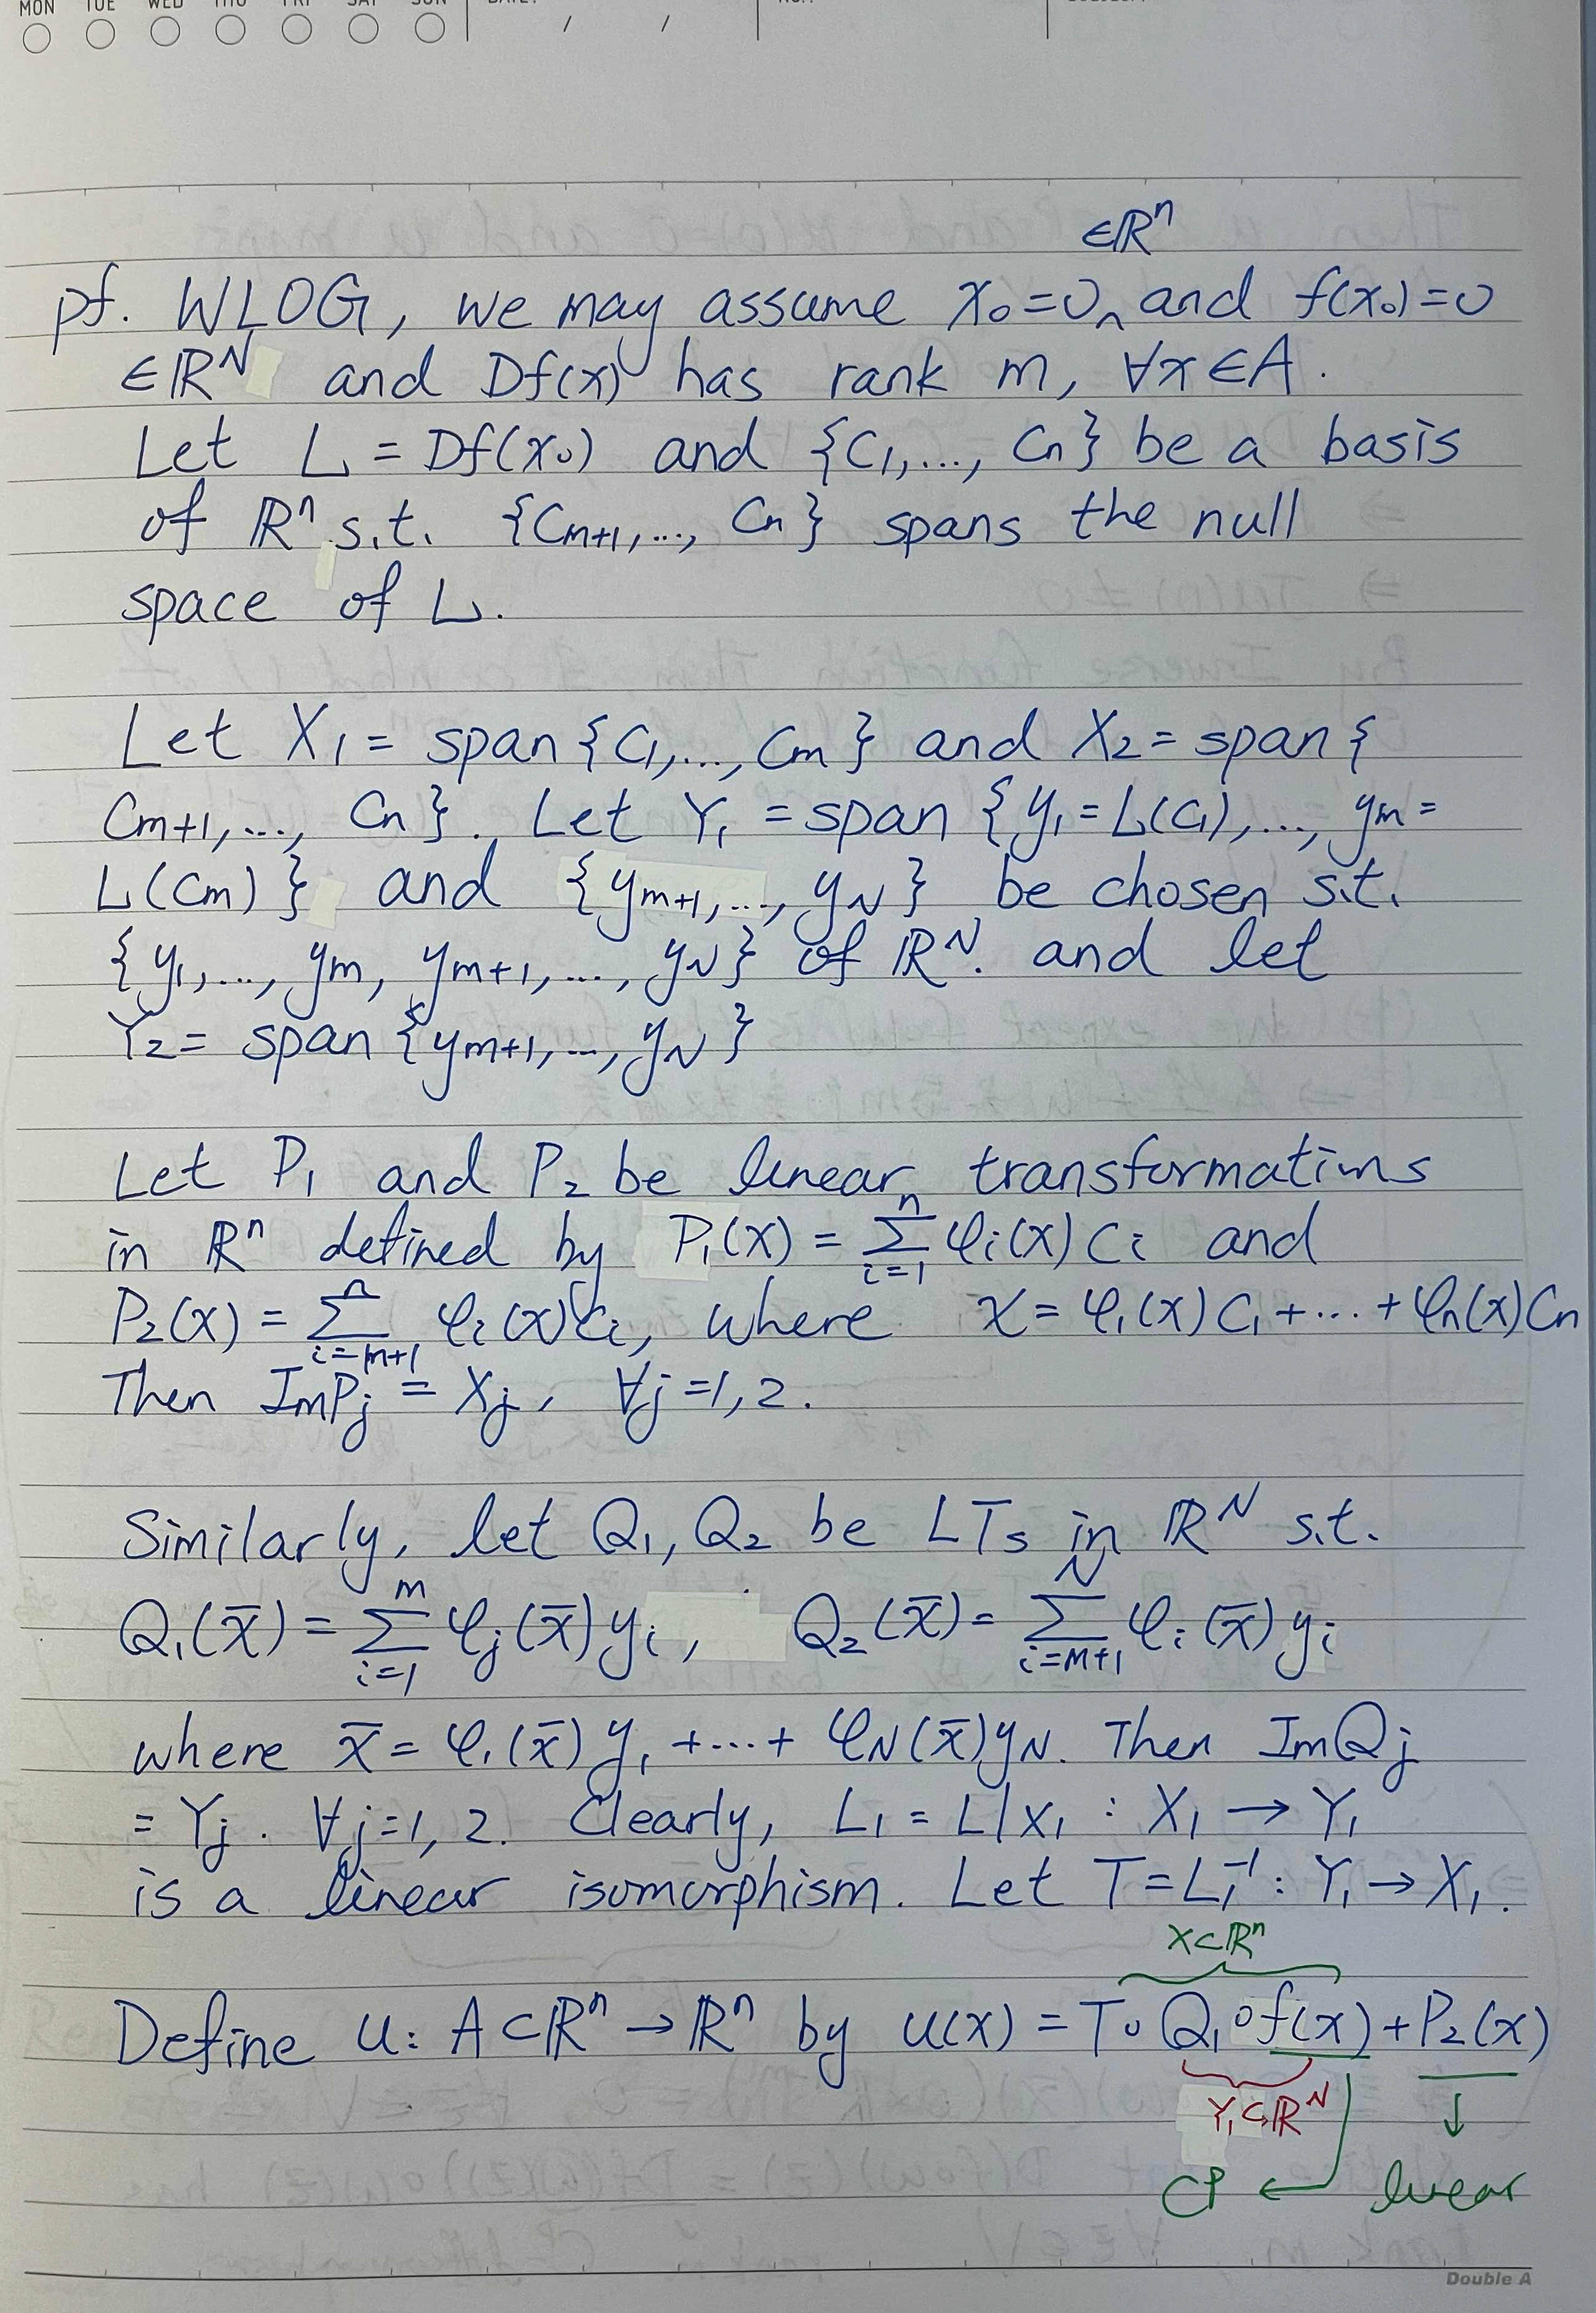 MON TUE WED THU FRI SAT SUN
∈ℝⁿ
pf. WLOG, we may assume x₀=0 ‸ and f(x₀)=0
∈ℝᴺ and Df(x) has rank m, ∀x∈A.
Let L = Df(x₀) and {C₁,..., Cn} be a basis
of ℝⁿ s.t. {Cm+1,..., Cn} spans the null
space of L.
Let X₁ = span{C₁,..., Cm} and X₂ = span{
Cm+1,..., Cn}. Let Y₁ = span {y₁=L(C₁),..., ym=
L(Cm)} and {ym+1,..., yN} be chosen s.t.
{y₁,..., ym, ym+1,..., yN} of ℝᴺ. and let
Y₂= span {ym+1,..., yN}
Let P₁ and P₂ be linear transformations
in ℝⁿ defined by P₁(x) = Σ_{i=1}^{n} φi(x)Ci and
P₂(x) = Σ_{i=m+1}^{n} φi(x)Ci, where x = φ₁(x)C₁+...+φn(x)Cn
Then ImPj = Xj, ∀j=1,2.
Similarly, let Q₁, Q₂ be LTs in ℝᴺ s.t.
Q₁(x̄) = Σ_{i=1}^{m} φj(x̄)yi, Q₂(x̄) = Σ_{i=m+1}^{N} φi(x̄)yi
where x̄ = φ₁(x̄)y₁+...+ φN(x̄)yN. Then ImQj
= Yj. ∀j=1,2. Clearly, L₁ = L|X₁ : X₁ → Y₁
is a linear isomorphism. Let T=L₁⁻¹: Y₁ → X₁.
X⊂ℝⁿ
Define u: A⊂ℝⁿ → ℝⁿ by u(x) = T∘Q₁∘f(x)+P₂(x)
Y₁⊂ℝᴺ ↓
Cᴾ ← linear
Double A